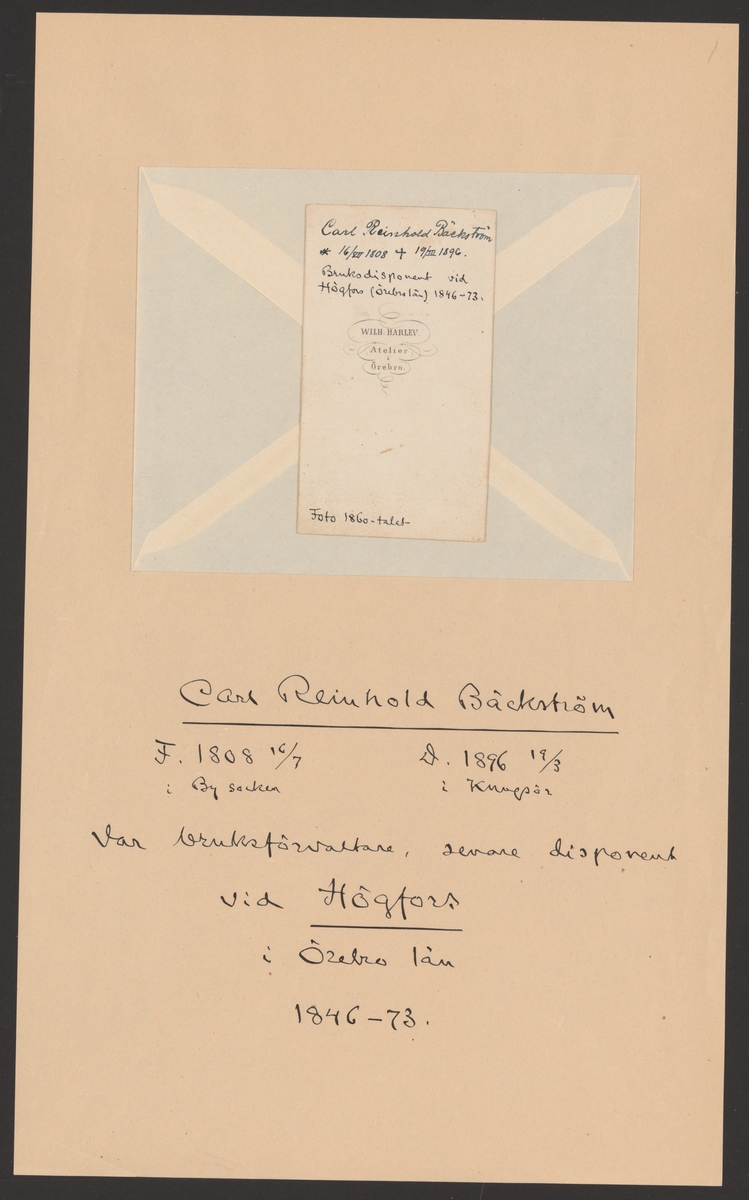 Carl Reinhold Bäckström
* 16/VII 1808 † 19/III 1896.
Bruksdisponent vid
Högfors (Örebro län) 1846-73.
WILH. HARLEV.
Atelier
i
Örebro.
Foto 1860-talet
Carl Reinhold Bäckström
F. 1808 16/7 D. 1896 19/3
i By socken i Kungsör
Var bruksförvaltare, senare disponent
vid Högfors
i Örebro län
1846-73.